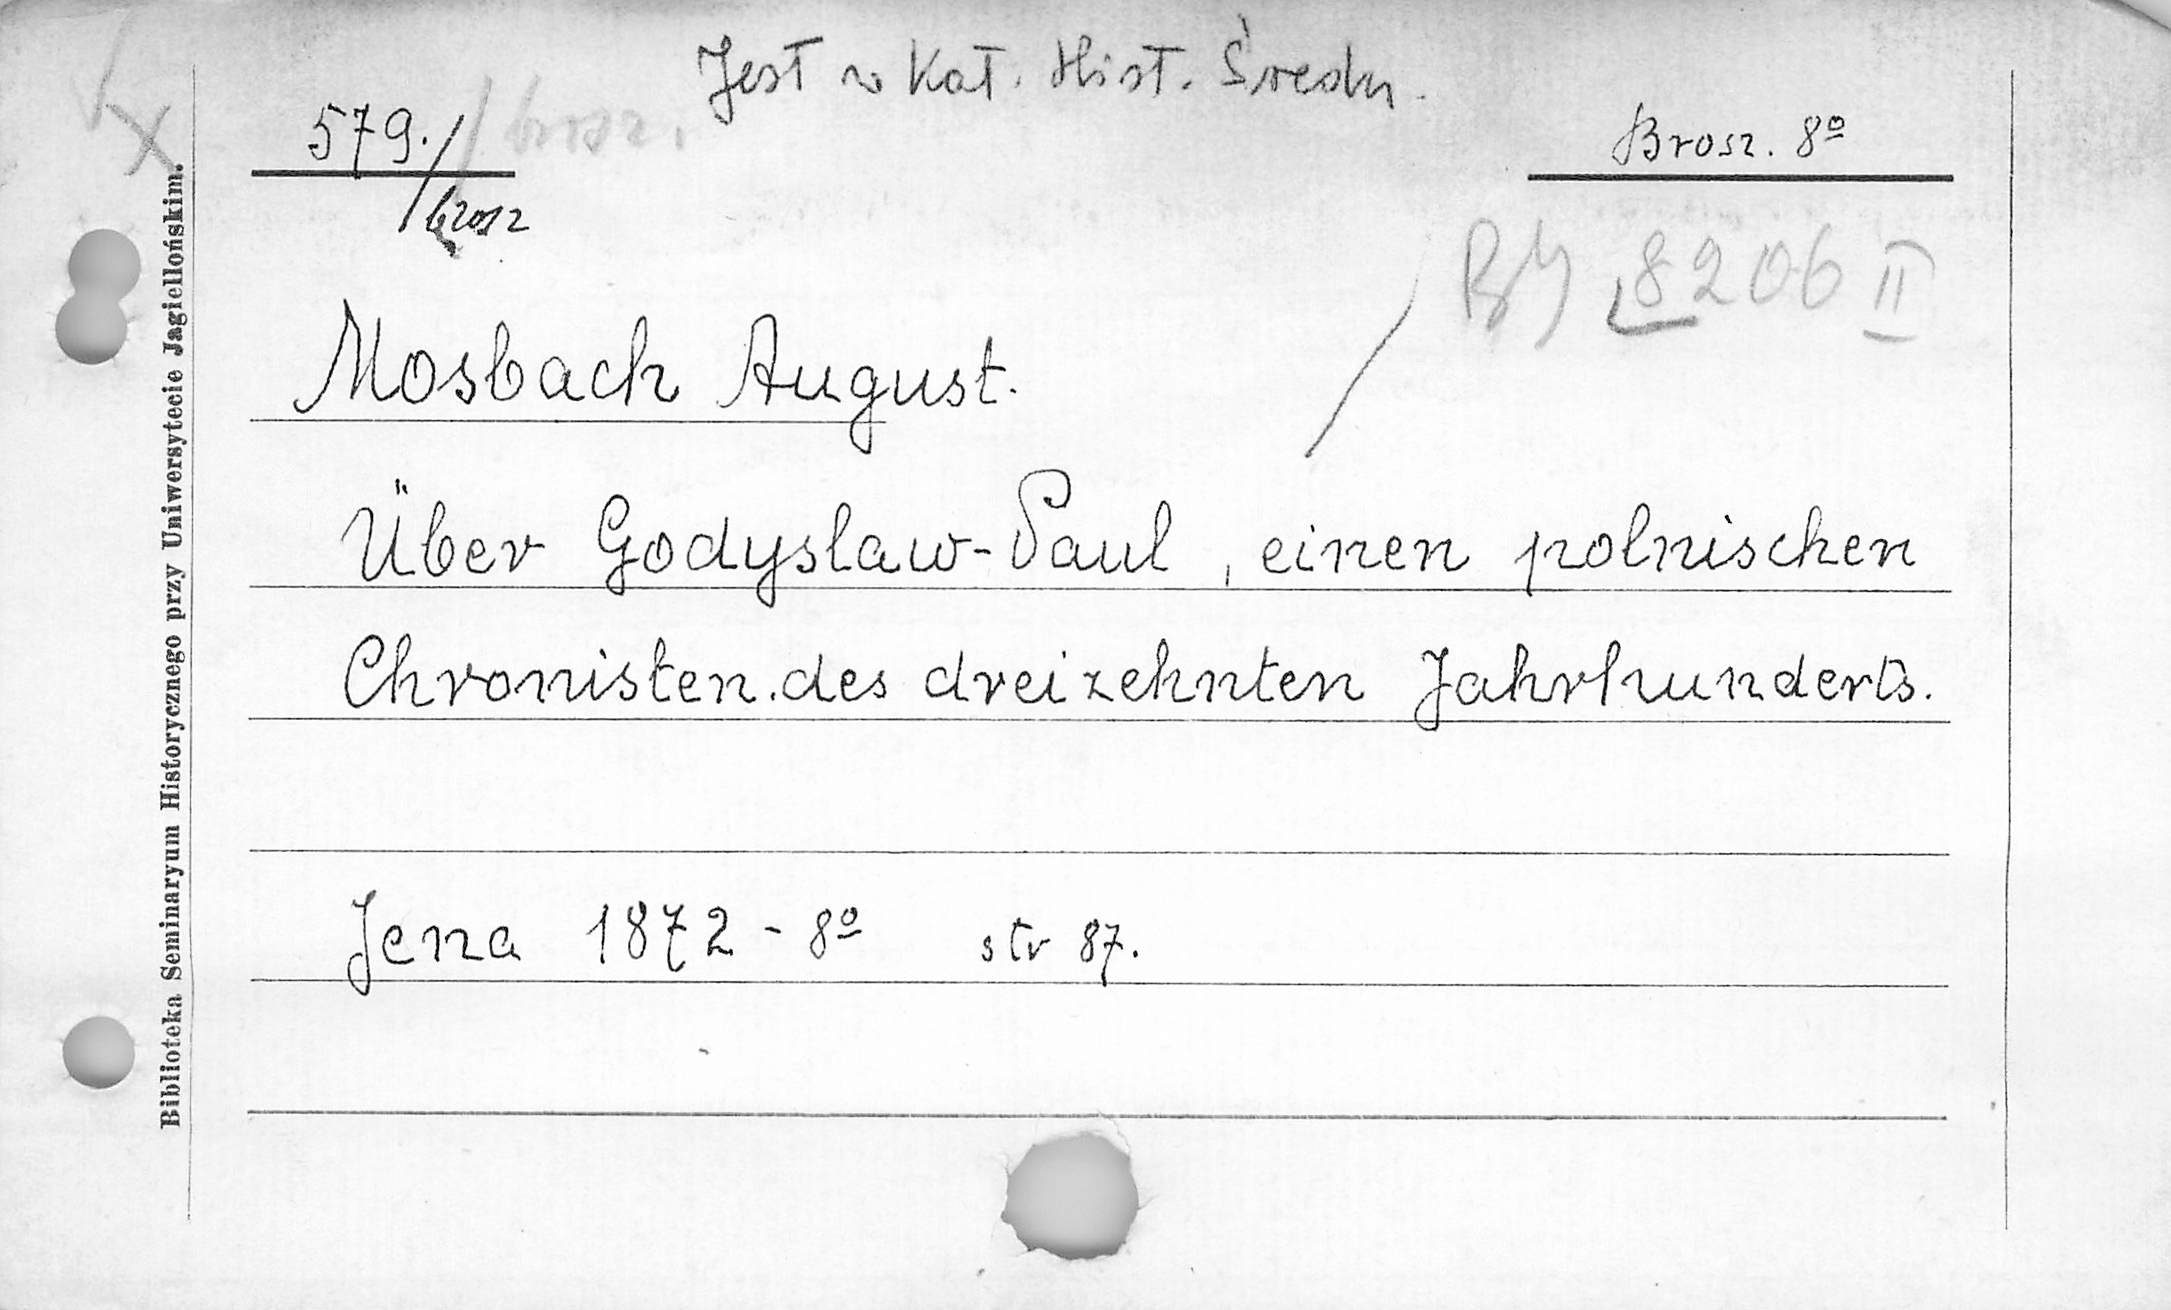 Jest w Kat. Hist. Średn.
579./brosz
brosz.
Brosz. 8º
BJ 8206 II
Mosbach August.
Über Godyslaw-Paul, einen polnischen
Chronisten des dreizehnten Jahrhunderts.
Jena 1872 - 8º str 87.
Biblioteka Seminaryum Historycznego przy Uniwersytecie Jagiellońskim.